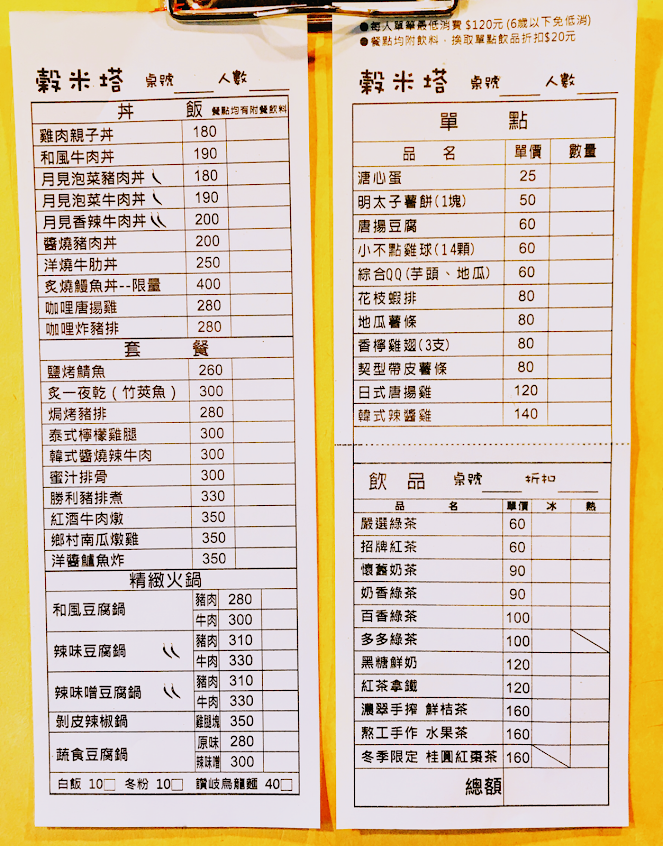 穀米塔 桌號 人數
丼 飯 餐點均有附餐飲料
雞肉親子丼 180
和風牛肉丼 190
月見泡菜豬肉丼 180
月見泡菜牛肉丼 190
月見香辣牛肉丼 200
醬燒豬肉丼 200
洋燒牛肋丼 250
炙燒鰻魚丼--限量 400
咖哩唐揚雞 280
咖哩炸豬排 280
套 餐
鹽烤鯖魚 260
炙一夜乾(竹莢魚) 300
焗烤豬排 280
泰式檸檬雞腿 300
韓式醬燒辣牛肉 300
蜜汁排骨 300
勝利豬排煮 330
紅酒牛肉燉 350
鄉村南瓜燉雞 350
洋醬鱸魚炸 350
精緻火鍋
和風豆腐鍋 豬肉 280
牛肉 300
辣味豆腐鍋 豬肉 310
牛肉 330
辣味噌豆腐鍋 豬肉 310
牛肉 330
剝皮辣椒鍋 雞腿塊 350
蔬食豆腐鍋 原味 280
辣味噌 300
白飯 10□ 冬粉 10□ 讚岐烏龍麵 40□
●每人單筆最低消費 $120元 (6歲以下免低消)
●餐點均附飲料，換取單點飲品折扣$20元
穀米塔 桌號 人數
單 點
品 名 單價 數量
溏心蛋 25
明太子薯餅(1塊) 50
唐揚豆腐 60
小不點雞球(14顆) 60
綜合QQ(芋頭、地瓜) 60
花枝蝦排 80
地瓜薯條 80
香檸雞翅(3支) 80
契型帶皮薯條 80
日式唐揚雞 120
韓式辣醬雞 140
飲 品 桌號 折扣
品 名 單價 冰 熱
嚴選綠茶 60
招牌紅茶 60
懷舊奶茶 90
奶香綠茶 90
百香綠茶 100
多多綠茶 100
黑糖鮮奶 120
紅茶拿鐵 120
濃翠手搾 鮮桔茶 160
熬工手作 水果茶 160
冬季限定 桂圓紅棗茶 160
總額